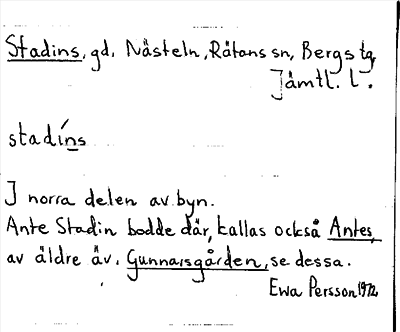 Stadins, gd, Nästeln, Råtans sn, Bergs tg,
Jämtl. l.
stadíns
I norra delen av byn.
Ante Stadin bodde där, kallas också Antes,
av äldre äv. Gunnarsgården, se dessa.
Ewa Persson 1972